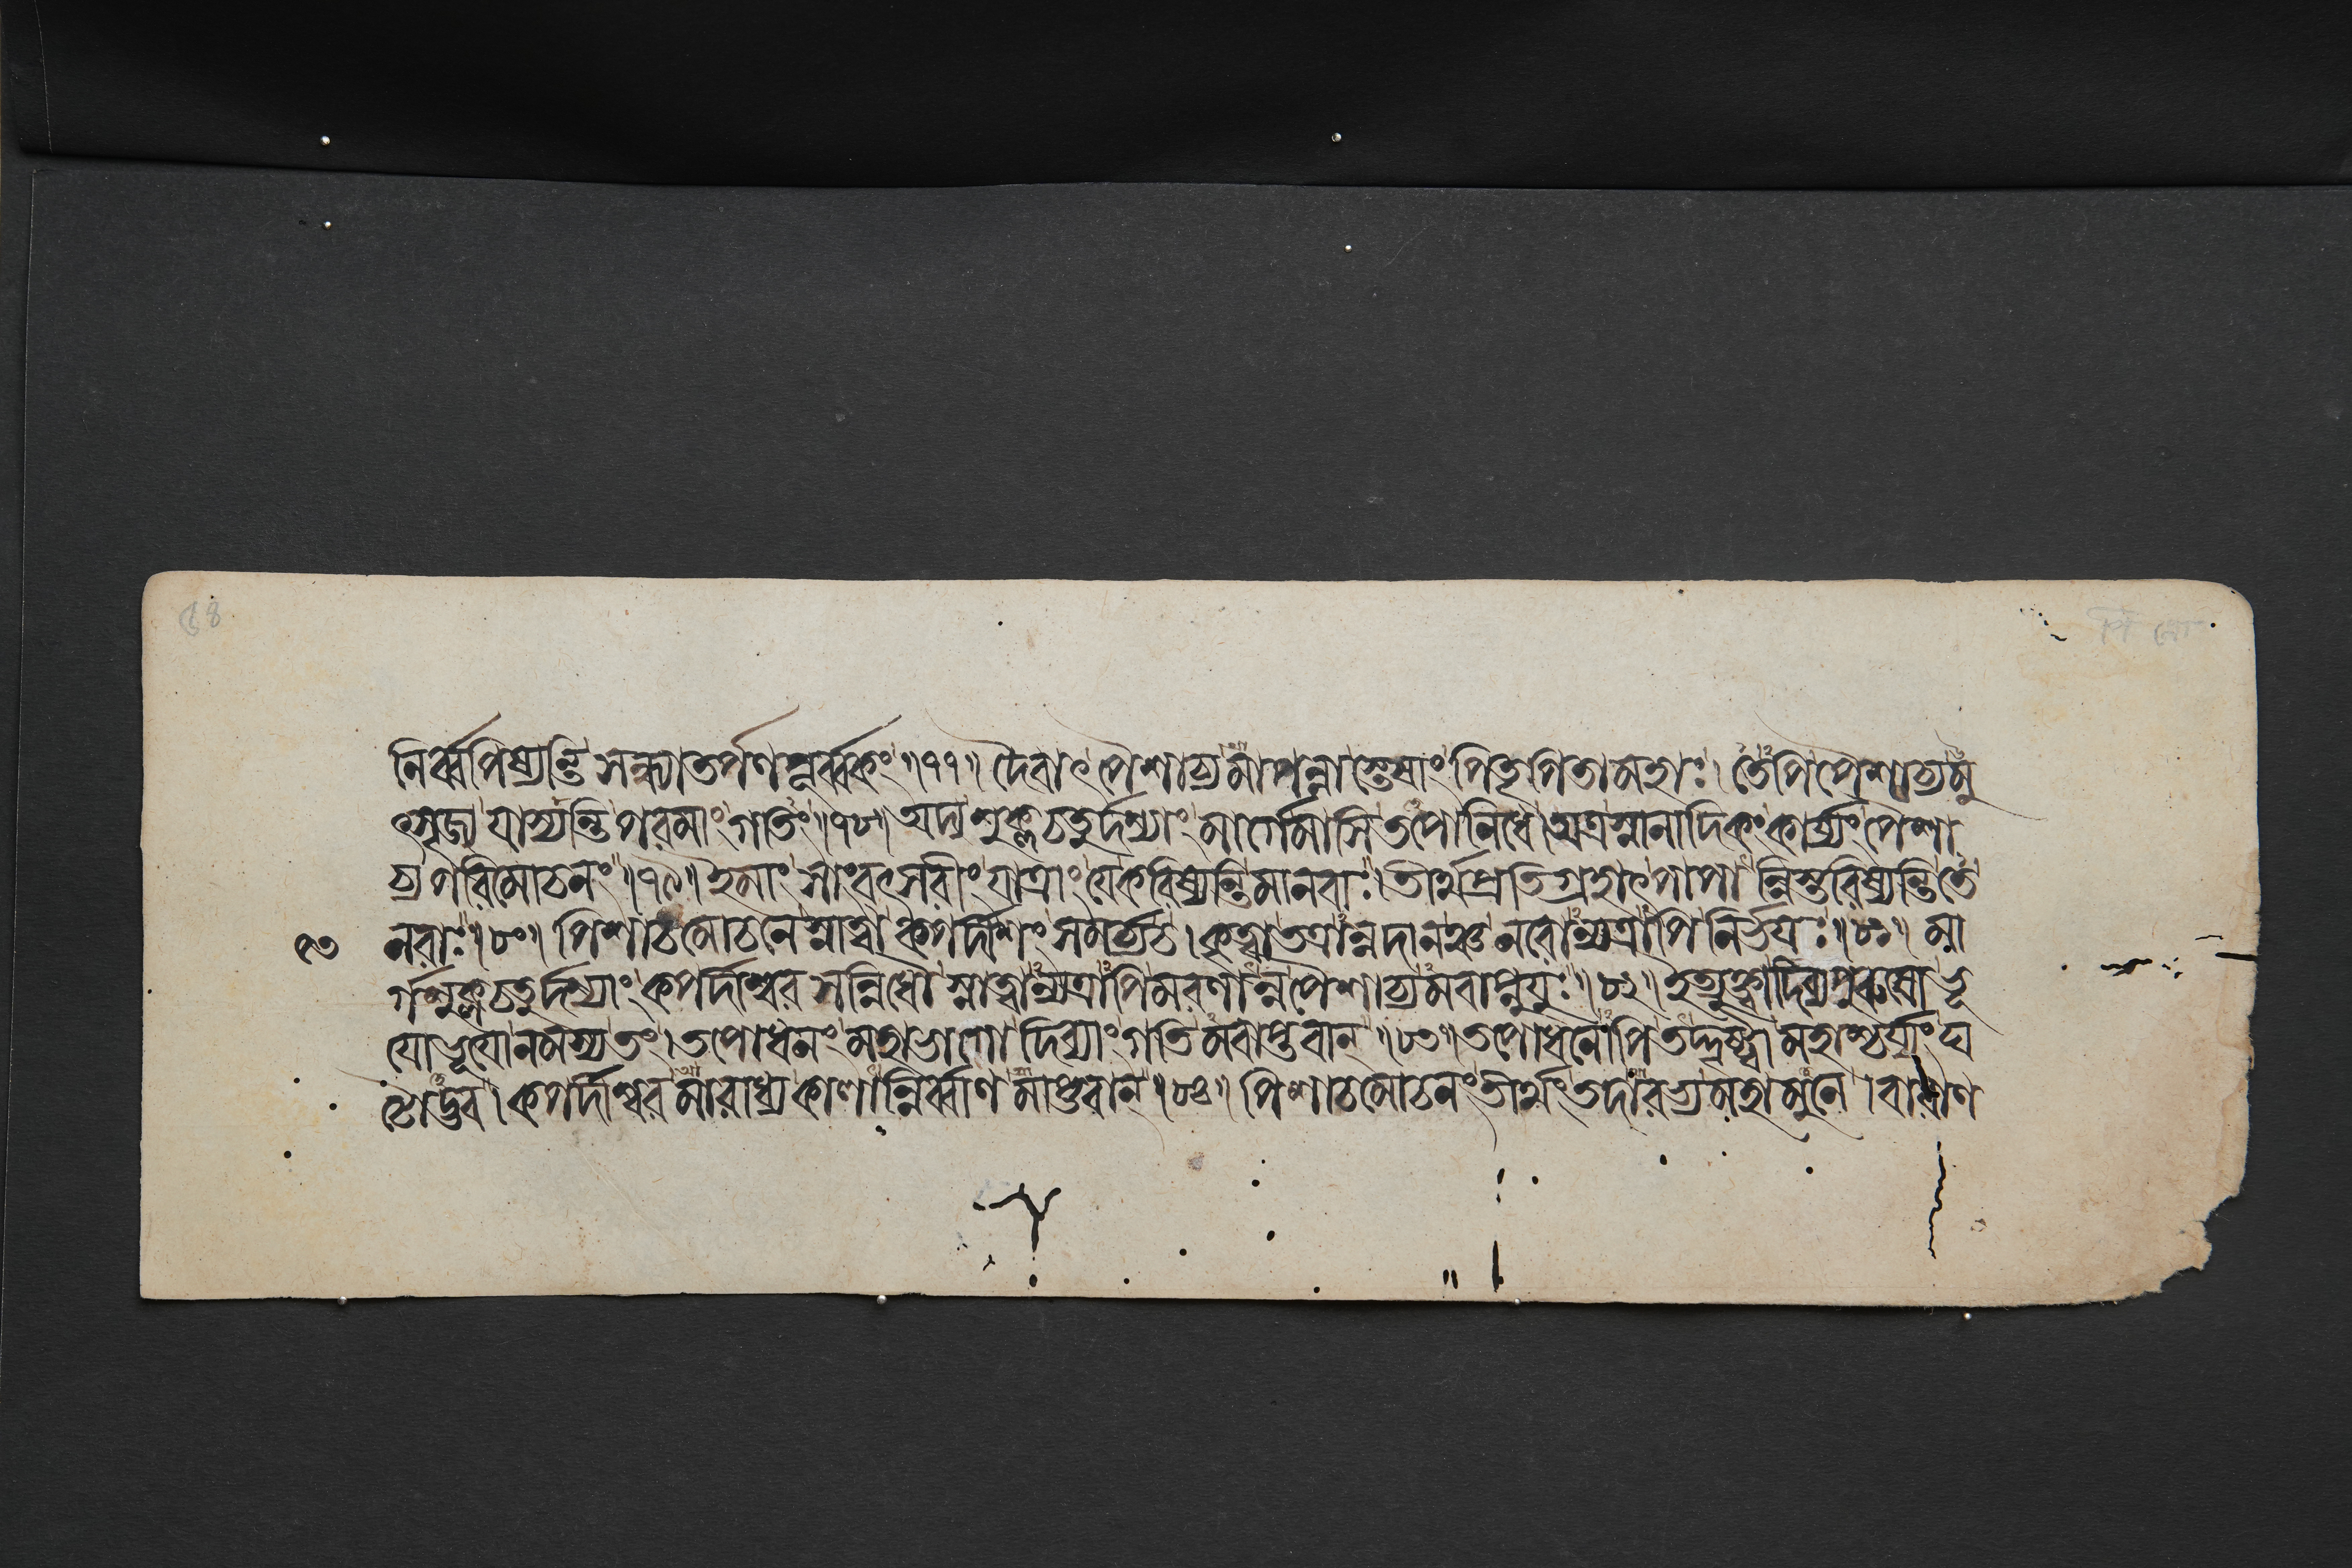 নির্ব্বপিষ্যন্তি সন্ধ্যাতর্পণপূর্ব্বকং॥৭৭॥ দৈবাৎ পৈশাচ্যমাপন্নাস্তেষাং পিতৃপিতামহাঃ। তেপি পৈশাচ্যমু
ৎসৃজ্য যাস্যন্তি পরমাং গতিং॥৭৮॥ অদ্য শুক্লচতুর্দশ্যাং মার্গেমাসি তপোনিধে। অত্র স্নানাদিকং কার্য্যং পৈশা
চ্যপরিমোচনং॥৭৯॥ ইমাং সাংবৎসরীং যাত্রাং যে করিষ্যন্তি মানবাঃ। তীর্থপ্রতিগ্রহাৎ পাপান্নিস্তরিষ্যন্তি তে
নরাঃ॥৮০॥ পিশাচমোচনে স্নাত্বা কপর্দীশং সমর্চ্য চ। কৃত্বা তত্রান্নদানঞ্চ নরোন্যত্রাপি নির্ভয়ঃ॥৮১॥ মা
র্গশুক্লচতুর্দশ্যাং কপর্দীশ্বর সন্নিধৌ স্নাত্বান্যত্রাপি মরণান্ন পৈশাচ্যমবাপ্নুয়ুঃ॥৮২॥ ইত্যুক্ত্বা দিব্যপুরুষো ভূ
য়োভূয়োনমস্য তং। তপোধনং মহাভাগো দিব্যাং গতিমবাপ্তবান্॥৮৩॥ তপোধনোপি তদ্দৃষ্ট্বা মহাশ্চর্য্যং ঘ
টোদ্ভব। কপর্দীশ্বরমারাধ্য কালান্নির্ব্বাণমাপ্তবান্॥৮৪॥ পিশাচমোচনং তীর্থং তদারভ্য মহামুনে। বারাণ